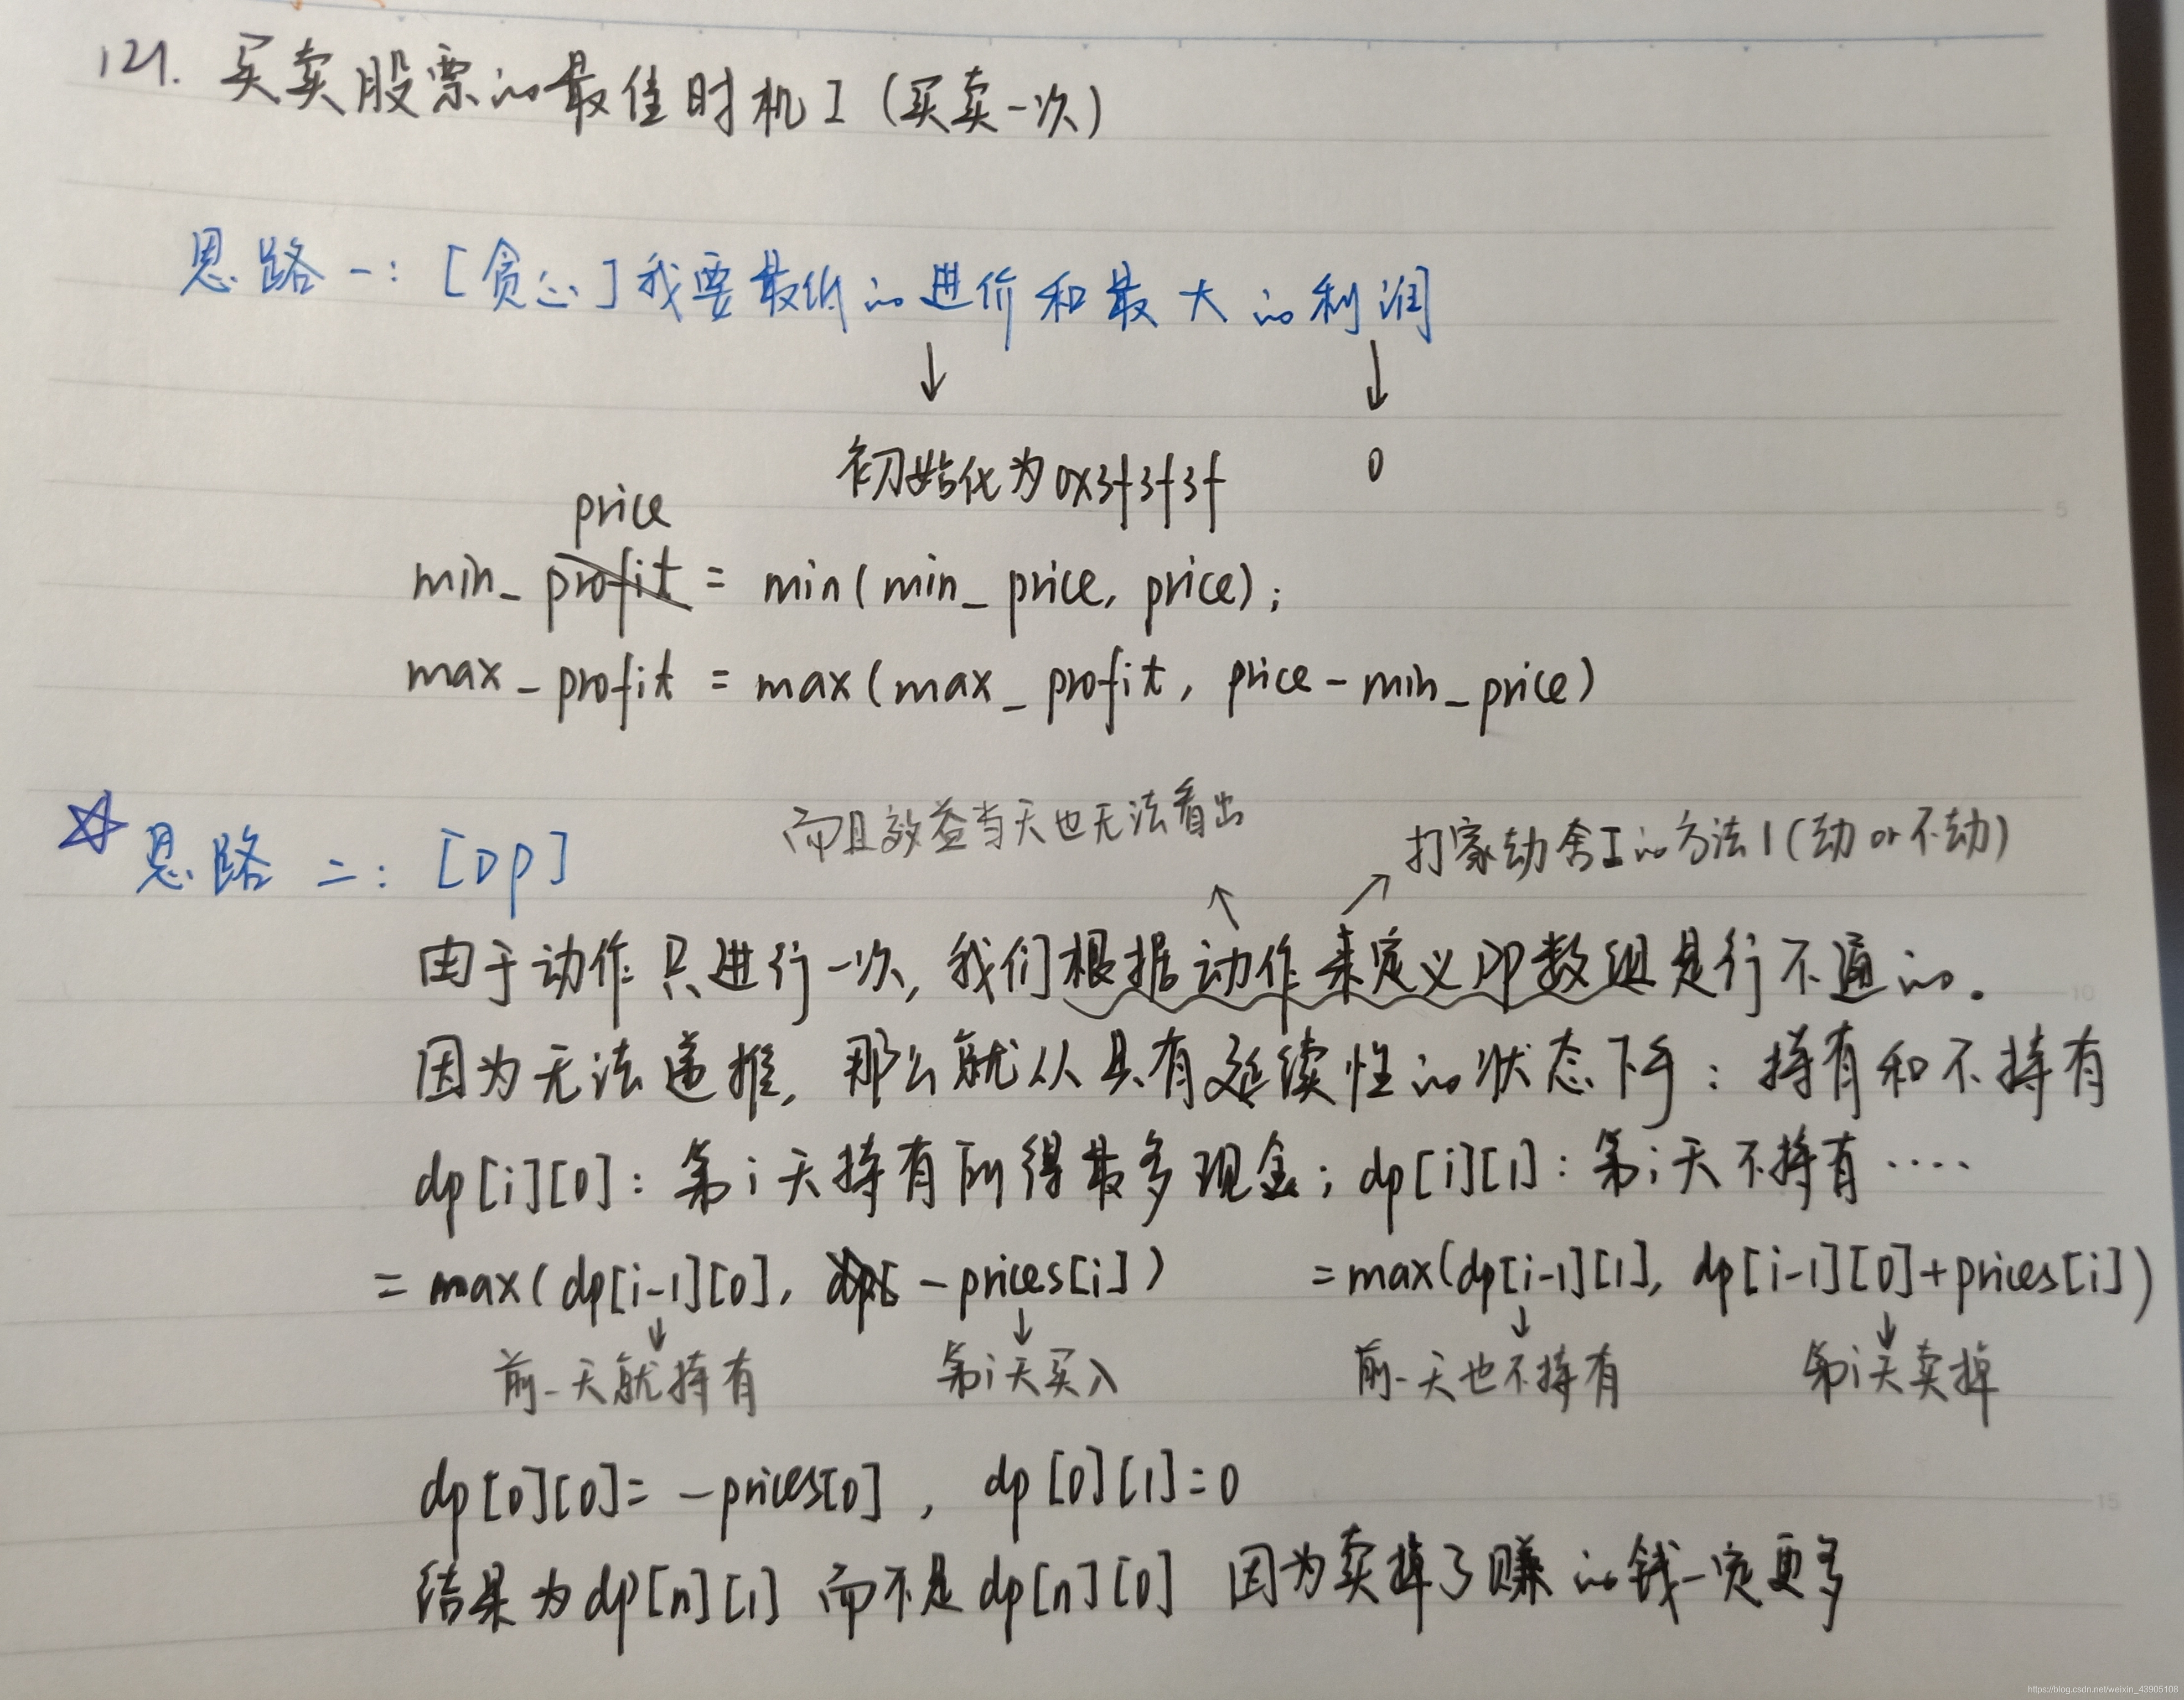 121. 买卖股票的最佳时机 I (买卖一次)
思路一: [贪心] 我要最低的进价和最大的利润
↓ ↓
初始化为 0x3f3f3f 0
price
min_ profit = min(min_price, price);
max_profit = max(max_profit, price-min_price)
而且效益当天也无法看出
打家劫舍I的方法1(劫 or 不劫)
☆思路二: [DP]
↑ ↗
由于动作只进行一次, 我们根据动作来定义DP数组是行不通的.
因为无法递推, 那么就从具有延续性的状态下手: 持有和不持有
dp[i][0]: 第i天持有所得最多现金; dp[i][1]: 第i天不持有 ····
= max(dp[i-1][0], dp[ -prices[i]) =max(dp[i-1][1], dp[i-1][0]+prices[i])
↓ ↓ ↓ ↓
前一天就持有 第i天买入 前一天也不持有 第i天卖掉
dp[0][0]= -prices[0] , dp[0][1]=0
结果为dp[n][1] 而不是dp[n][0] 因为卖掉了赚的钱一定更多
5
10
15
https://blog.csdn.net/weixin_43905108